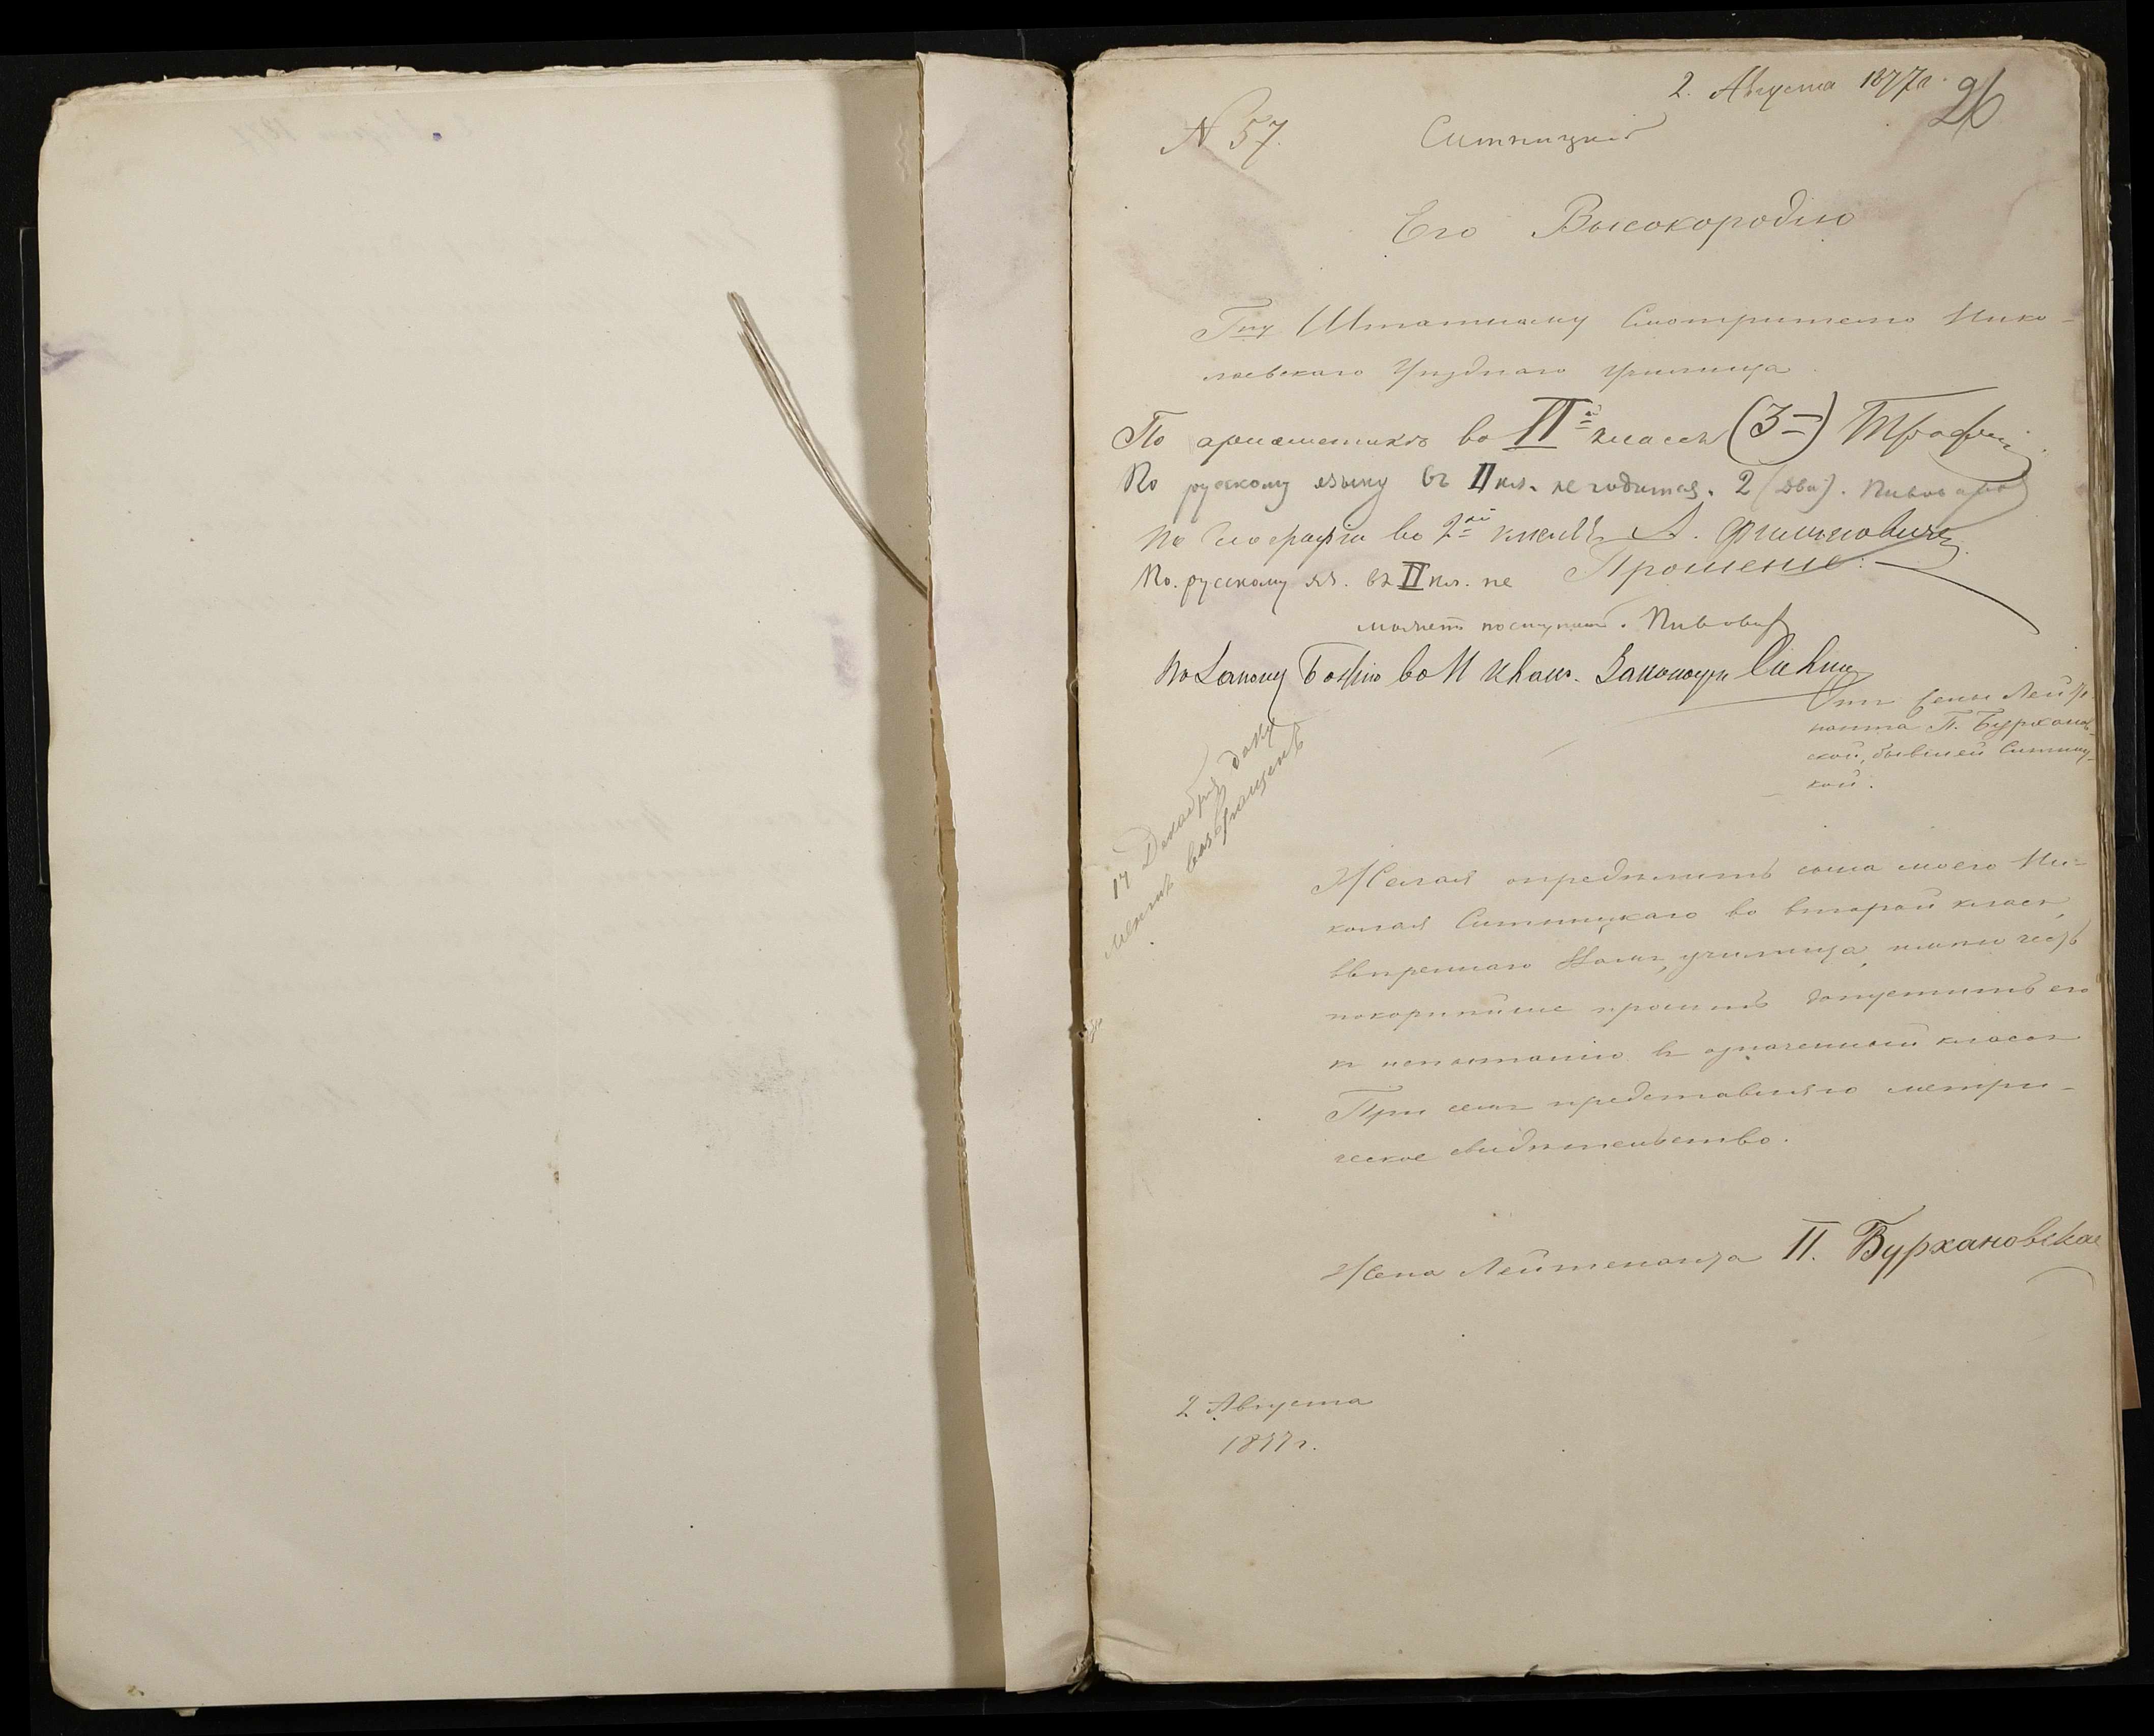 2. Августа 1877 г. 26
N 57. Ситницкій
Его Высокородію
Гну Штатному Смотрителю Нико-
лаевскаго Уѣзднаго Училища
По ариѳметикѣ во II-й классъ (3-)
По русскому языку въ II кл. не годится. 2 (два). Пивоваров
По Географіи во 2-й классъ А. Филипович
По русскому яз. въ II кл. не Прошеніе.
можетъ поступить. Пивовар
По Закону Божію во II класс. Законоучи
Отъ жены Лейте-
нанта П. Бурханов-
ской, бывшей Ситниц-
кой.
17 Декабря доку
менты возвращены
Желая опредѣлить сына моего Ни-
колая Ситницкаго во второй классъ,
ввѣреннаго Вамъ, училища, имѣю честь
покорнѣйше просить допустить его
къ испытанію въ означенный классъ
При семъ представляю метри-
ческое свидѣтельство.
Жена Лейтенанта П. Бурхановская
2 Августа
1877 г.